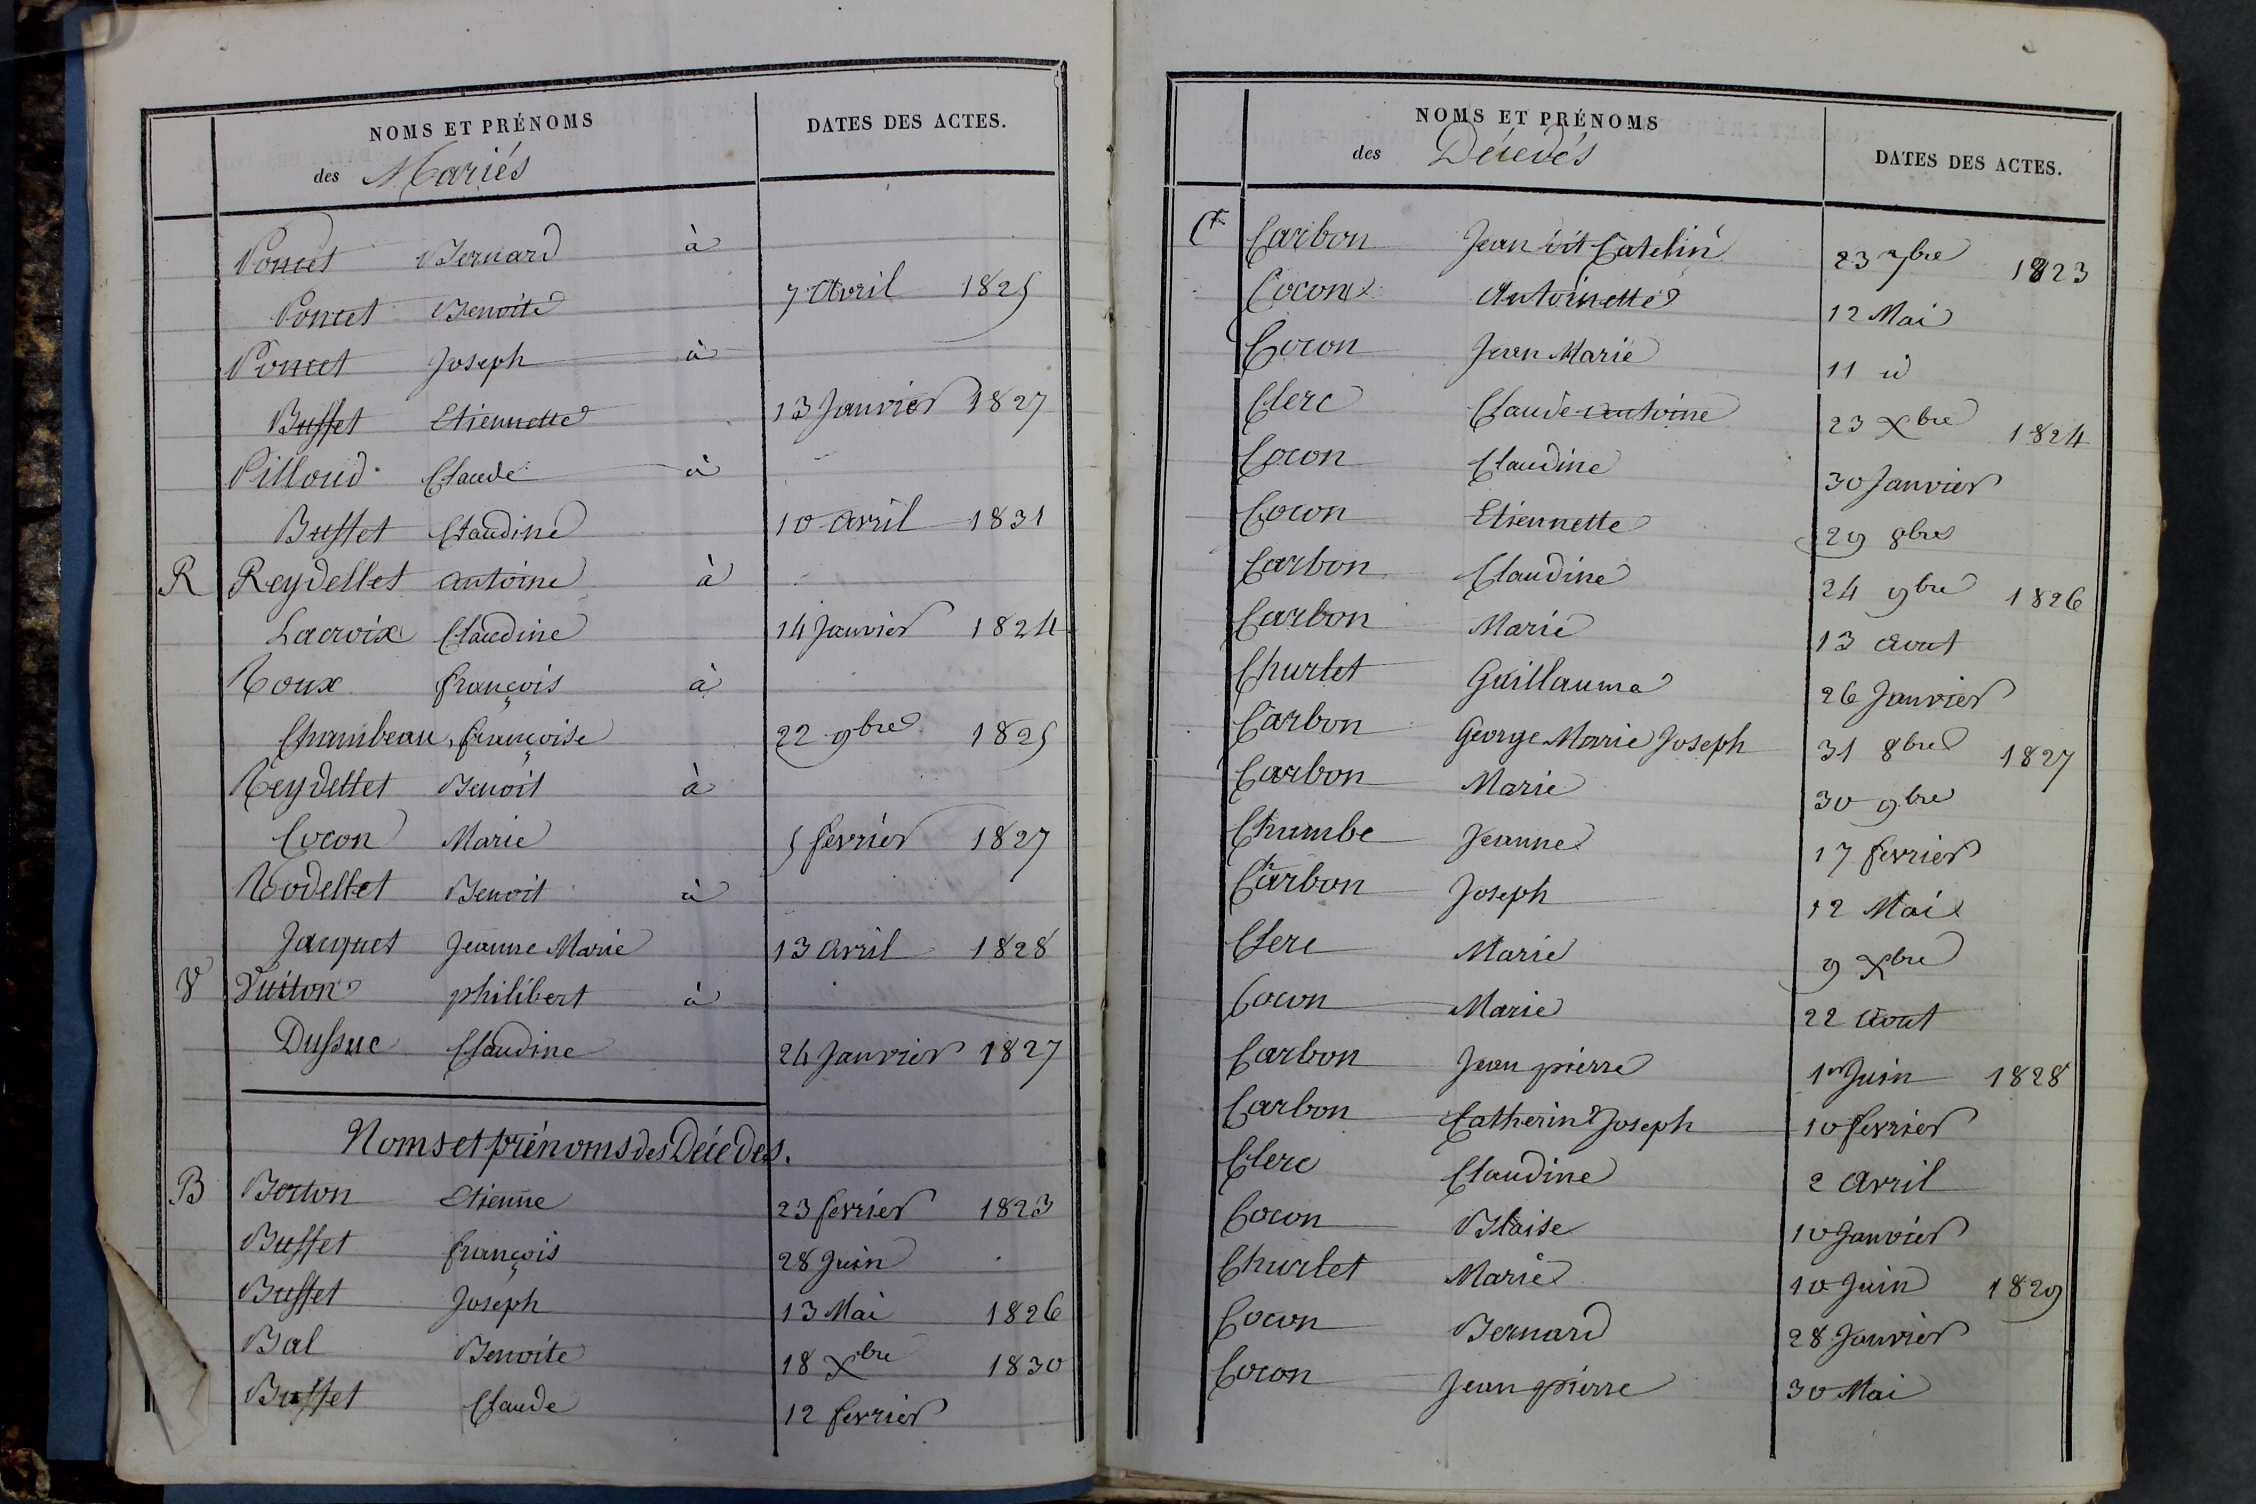 NOMS ET PRÉNOMS
des Mariés
DATES DES ACTES.
Poncet Bernard à
Poncet Benoite 7 Avril 1825
Poncet Joseph à
Buffet Etiennette 13 Janvier 1827
Pilloud Claude à
Buffet Claudine 10 avril 1831
R Reydellet antoine à
Lacroix Claudine 14 Janvier 1824
Roux françois à
Chambeau françoise 22 9bre 1825
Reydellet Benoit à
Cocon Marie 5 fevrier 1827
Rodellet Benoit à
Jacquet Jeanne Marie 13 avril 1828
V Vuiton philibert à
Dussuc Claudine 24 Janvier 1827
Noms et prénoms des Décédés.
B Borton Etienne 23 fevrier 1823
Buffet françois 28 Juin
Buffet Joseph 13 Mai 1826
Bal Benoite 18 Xbre 1830
Buffet Claude 12 fevrier
NOMS ET PRÉNOMS
des Décédés
DATES DES ACTES.
C Carbon Jean dit Catelin 23 7bre 1823
Cocon Antoinette 12 Mai
Cocon Jean Marie 11 id
Clerc Claude antoine 23 Xbre 1824
Cocon Claudine 30 Janvier
Cocon Etiennette 29 8bre
Carbon Claudine 24 9bre 1826
Carbon Marie 13 aout
Churlet Guillaume 26 Janvier
Carbon George Marie Joseph 31 8bre 1827
Carbon Marie 30 9bre
Chambe Jeanne 17 fevrier
Carbon Joseph 12 Mai
Clerc Marie 9 Xbre
Cocon Marie 22 Aout
Carbon Jean pierre 1er Juin 1828
Carbon Catherine Joseph 10 fevrier
Clerc Claudine 2 avril
Cocon Blaise 10 Janvier
Churlet Marie 10 Juin 1829
Cocon Bernard 28 Janvier
Cocon Jean pierre 30 Mai